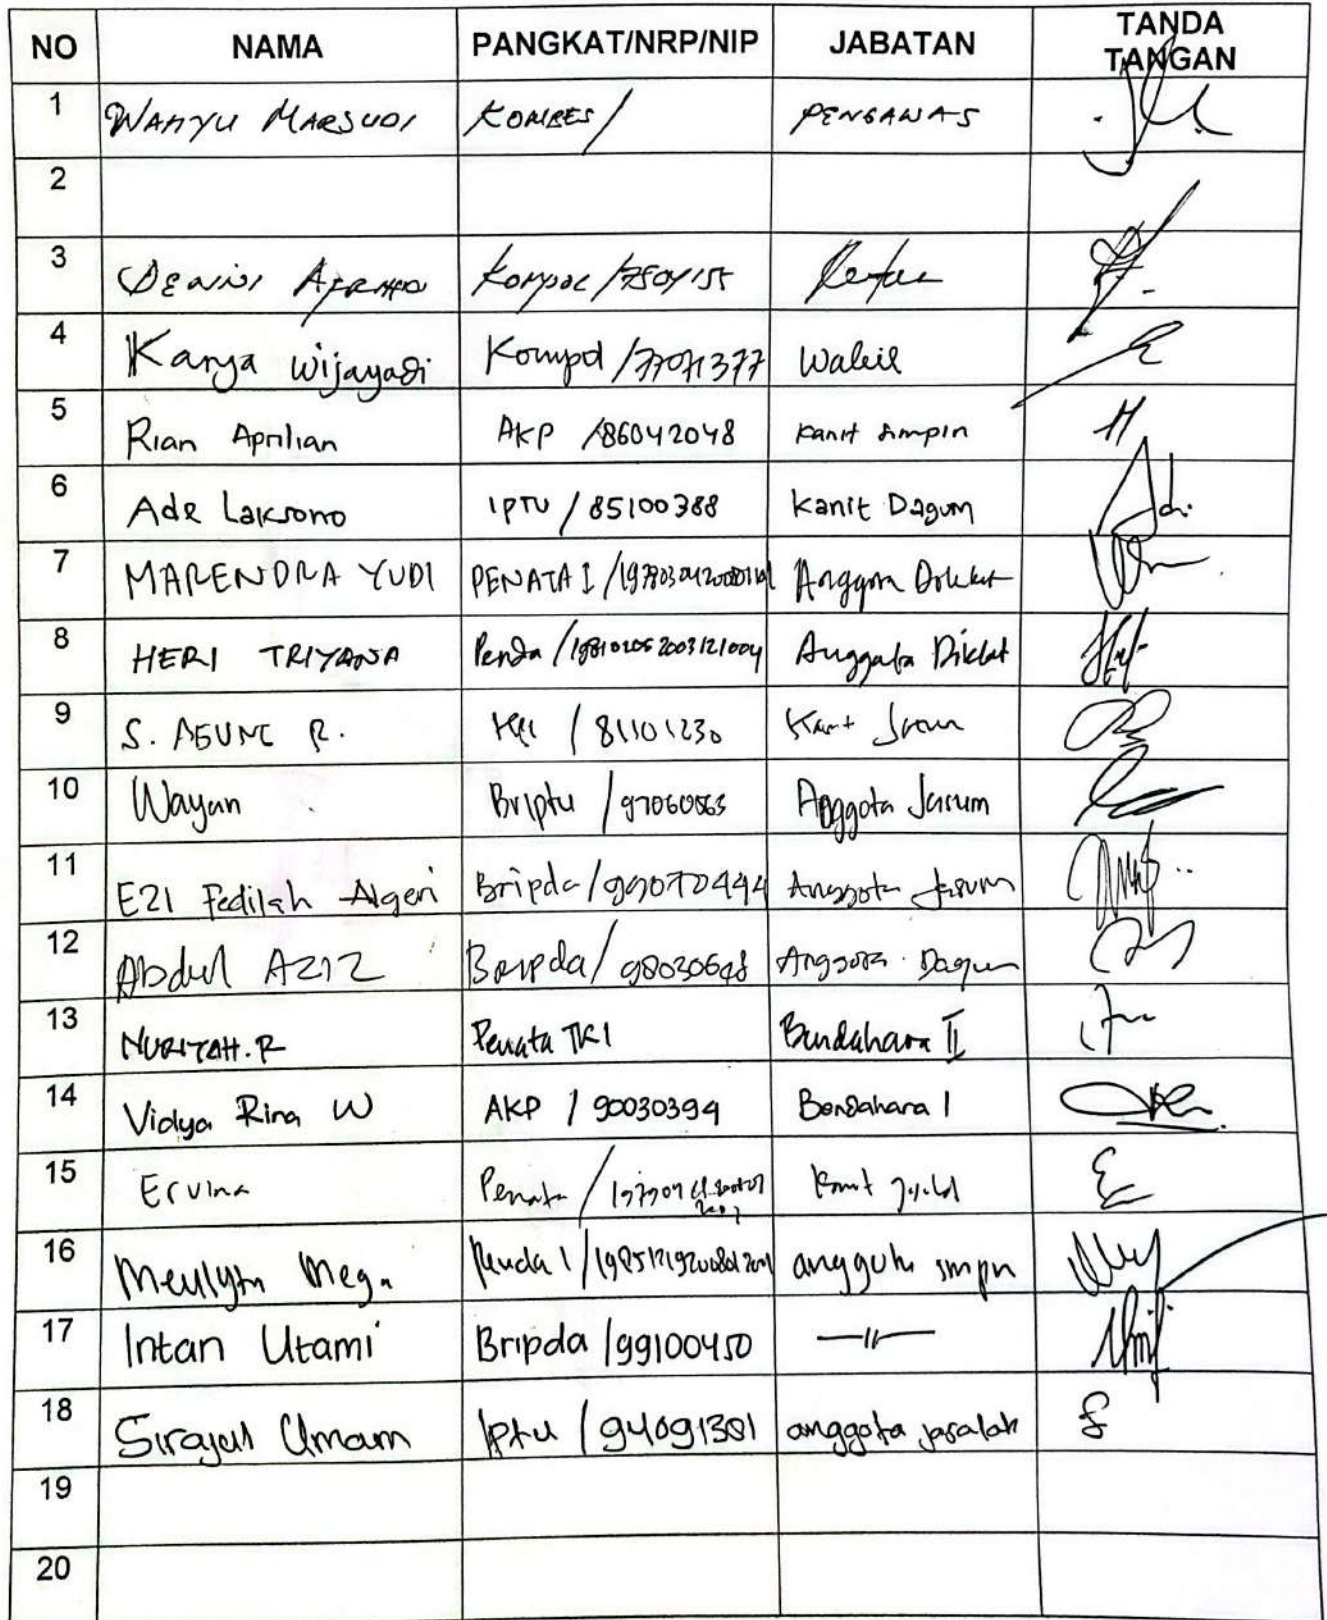 NO NAMA PANGKAT/NRP/NIP JABATAN TANDA TANGAN
1 WAHYU MARSUDI KOMBES/ PENGAWAS
2
3 DENNI Kompol /
4 Karya Wijayadi Kompol /77071377 Wakil
5 Rian Aprilian AKP /86042048 Kanit Simpin
6 Ade Laksono IPTU / 85100388 Kanit Dagum
7 MARENDRA YUDI PENATA I / Anggota Diklat
8 HERI TRIYANA Penda /198102052003121004 Anggota Diklat
9 S. AGUNG R. / 81101230 Kanit
10 Wayan Briptu / Anggota Jasum
11 EZI Fedilah Algeri Bripda / Anggota Jasum
12 Abdul AZIZ Bripda/ 98030648 Anggota Dagum
13 NURIYAH. R Penata TK I Bendahara II
14 Vidya Rina W AKP / 90030394 Bendahara I
15 Ervina Penata / Kanit
16 Mega Penda I / simpn
17 Intan Utami Bripda /99100450 —〃—
18 Sirajul Umam Iptu / 94091301 anggota jasalah
19
20